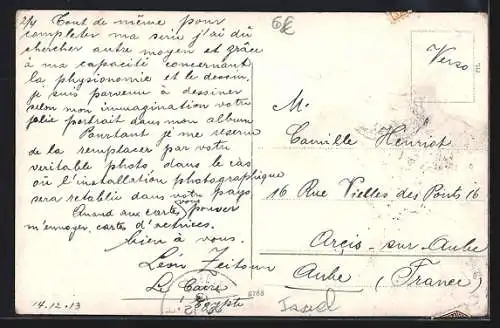 2/4 Tout de même pour
completer ma serie j'ai dû
chercher autre moyen et grâce
à ma capacité concernant
la physionomie et le dessin,
je suis parvenu à dessiner
selon mon immagination votre
jolie portrait dans mon album
Pourtant je me reserve
de la remplacer par votre
veritable photo, dans le cas
où l'installation photographique
sera retablie dans votre pays
Quand aux cartes vous pouver
m'envoyer cartes d'actrices.
bien à vous.
Léon Zeitoun
Le Caire
Egypte
14.12.13
6788
Verso
M.
Camille Henriot
16 Rue Vielles des Ponts 16
Arcis-sur-Aube
Aube (France)